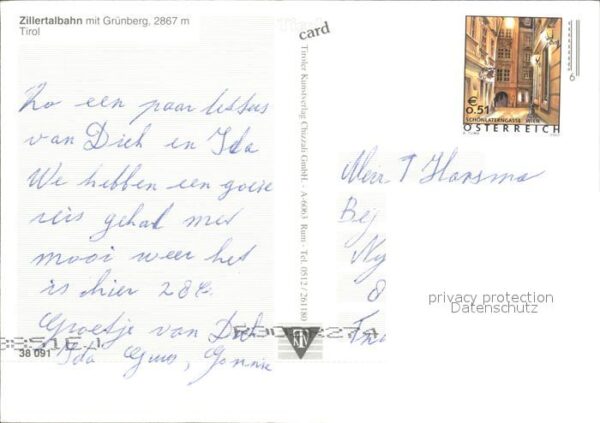 Zillertalbahn mit Grünberg, 2867 m
Tirol
Zo een paar letters
van Dick en Ida
We hebben een goeie
reis gehad met
mooi weer het
is hier 28 gr.
Groetje van Dick
Ida Guus, Gonnie
38 091
card
Tiroler Kunstverlag Chizzali GmbH. - A-6063 Rum - Tel. 0512 / 261180
€ 0.51
SCHÖNLATERNGASSE WIEN
ÖSTERREICH
6
T Hansma
privacy protection
Datenschutz